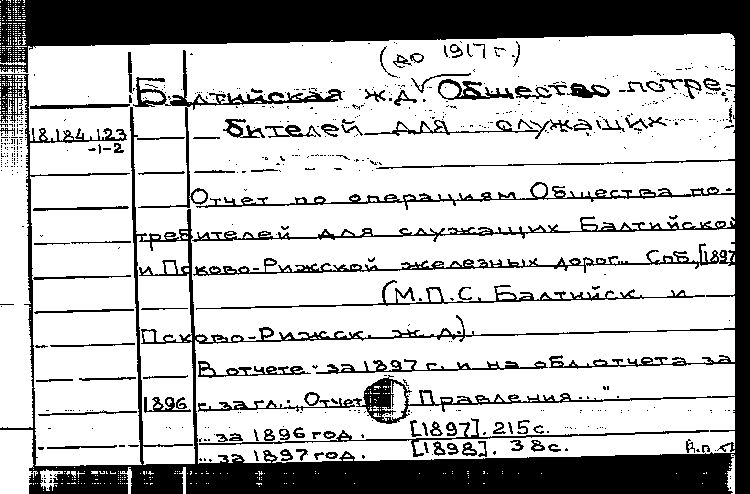 (до 1917 г.)
Балтийская ж.д. Общество потре-
18.184.123 бителей для служащих.
-1-2
Отчет по операциям Общества по-
требителей для служащих Балтийской
и Псково-Рижской железных дорог... Спб, [1897
(М.П.С. Балтийск. и
Псково-Рижск. ж.д.).
В отчете: за 1897 г. и на обл. отчета за
1896 г. загл.: „Отчет Правления...".
...за 1896 год. [1897]. 215 с.
...за 1897 год. [1898]. 38 с.